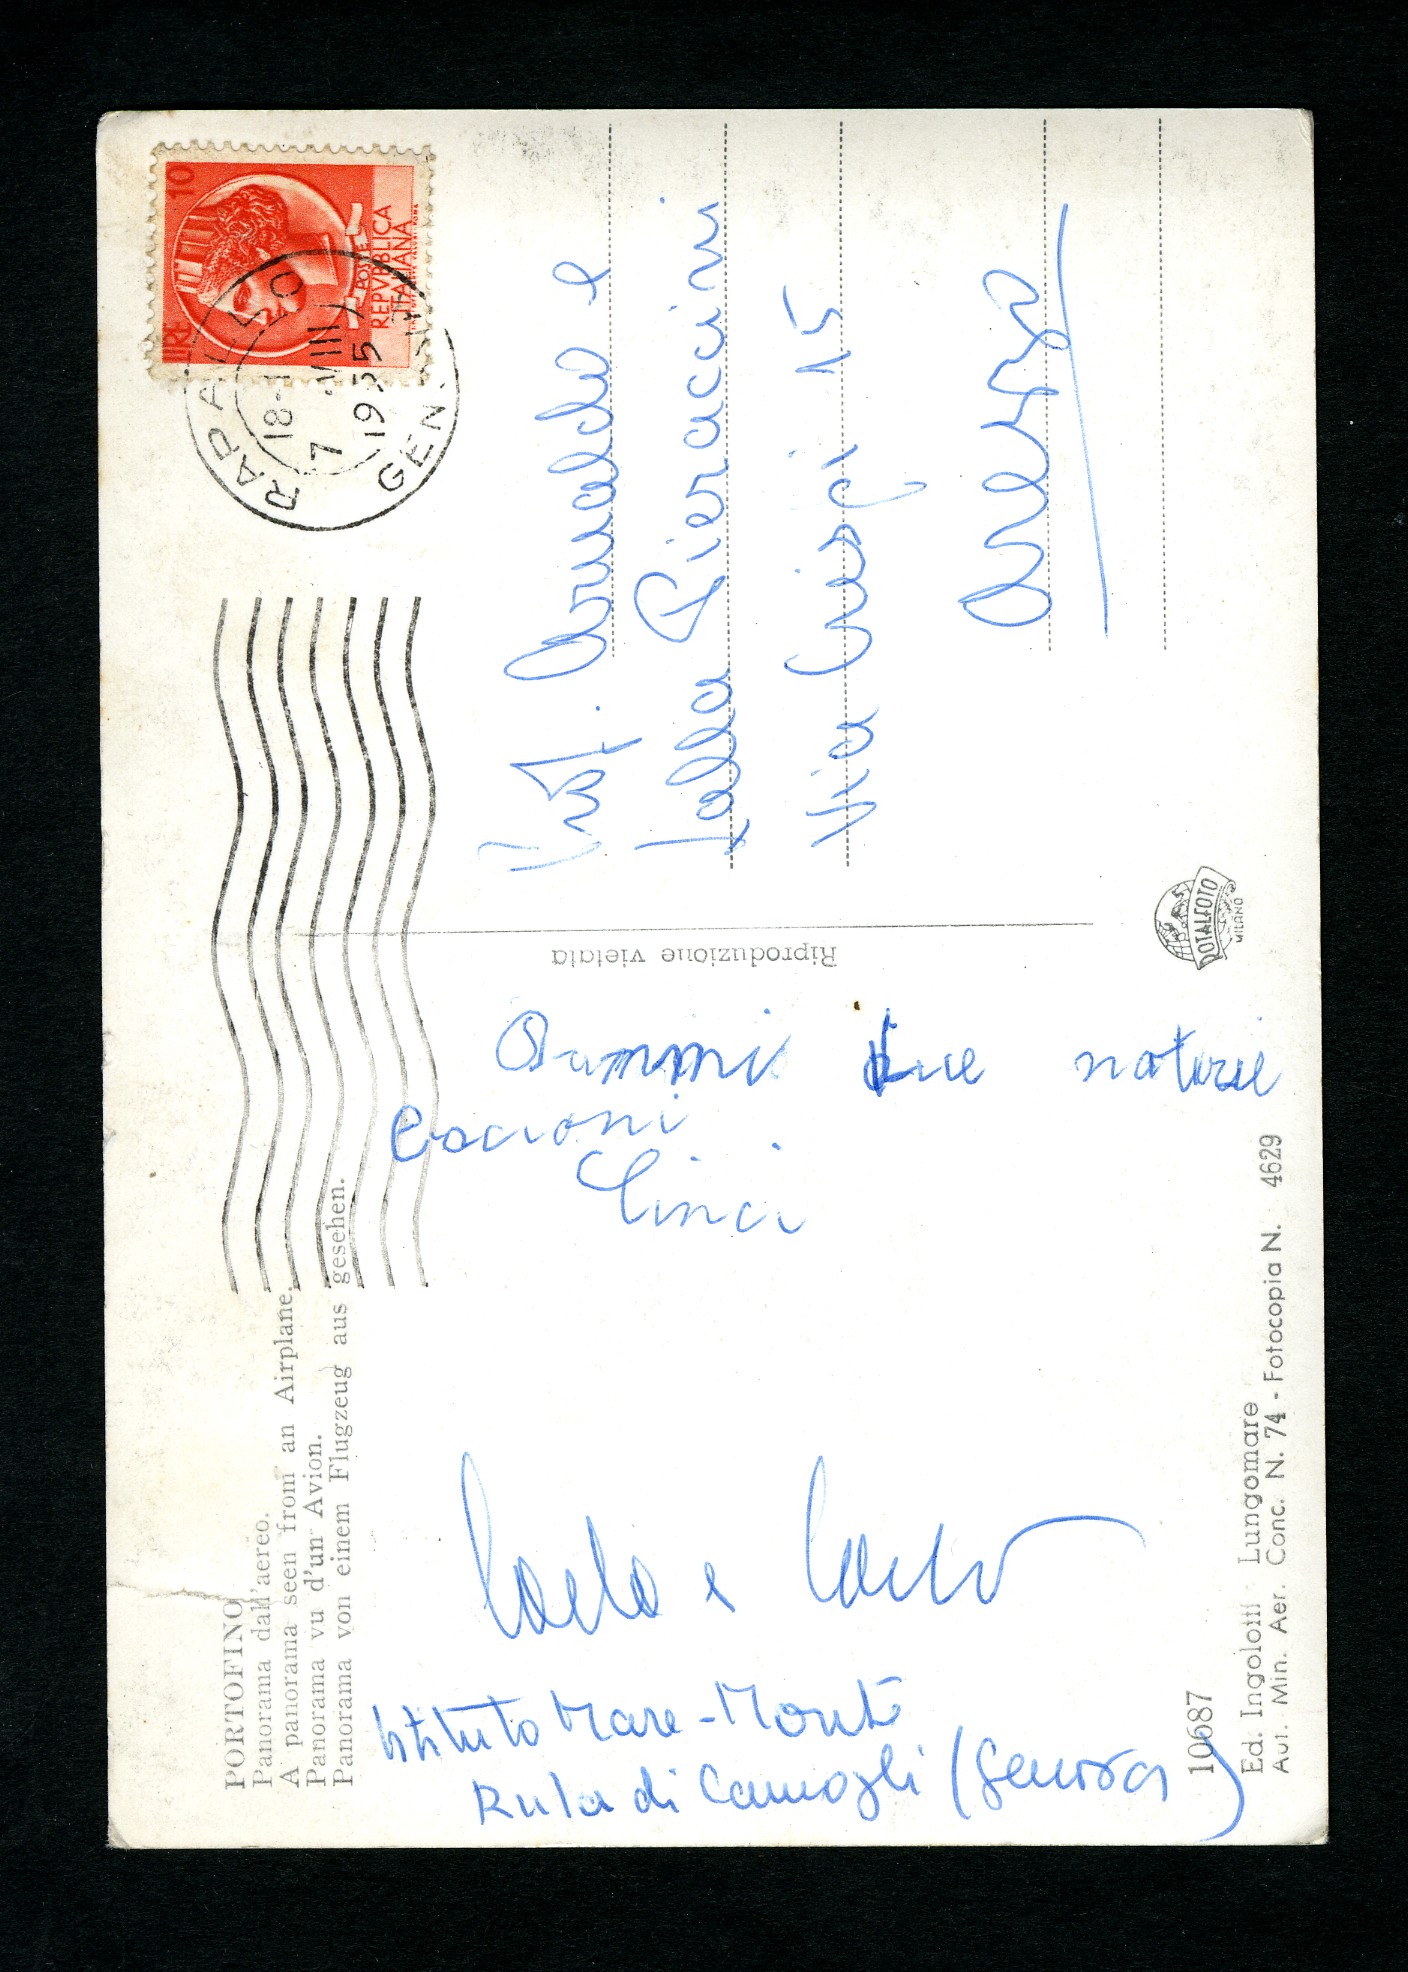 PORTOFINO
Panorama dall'aereo.
A panorama seen from an Airplane.
Panorama vu d'un Avion.
Panorama von einem Flugzeug aus gesehen.
LIRE 10
POSTE
REPVBBLICA
ITALIANA
RAPALLO
GENOVA
7 VIII
1955
Prof. Arnaldo e
Lalla Pieraccini
Via Crispi 15
Arezzo
Riproduzione vietata
Dammi tue notizie
Bacioni
Cinci
Carla e Carlo
Istituto Mare-Monti
Ruta di Camogli (Genova)
10687
Ed. Ingolotti Lungomare
Aut. Min. Aer. Conc. N. 74 - Fotocopia N. 4629
ROTALFOTO
MILANO